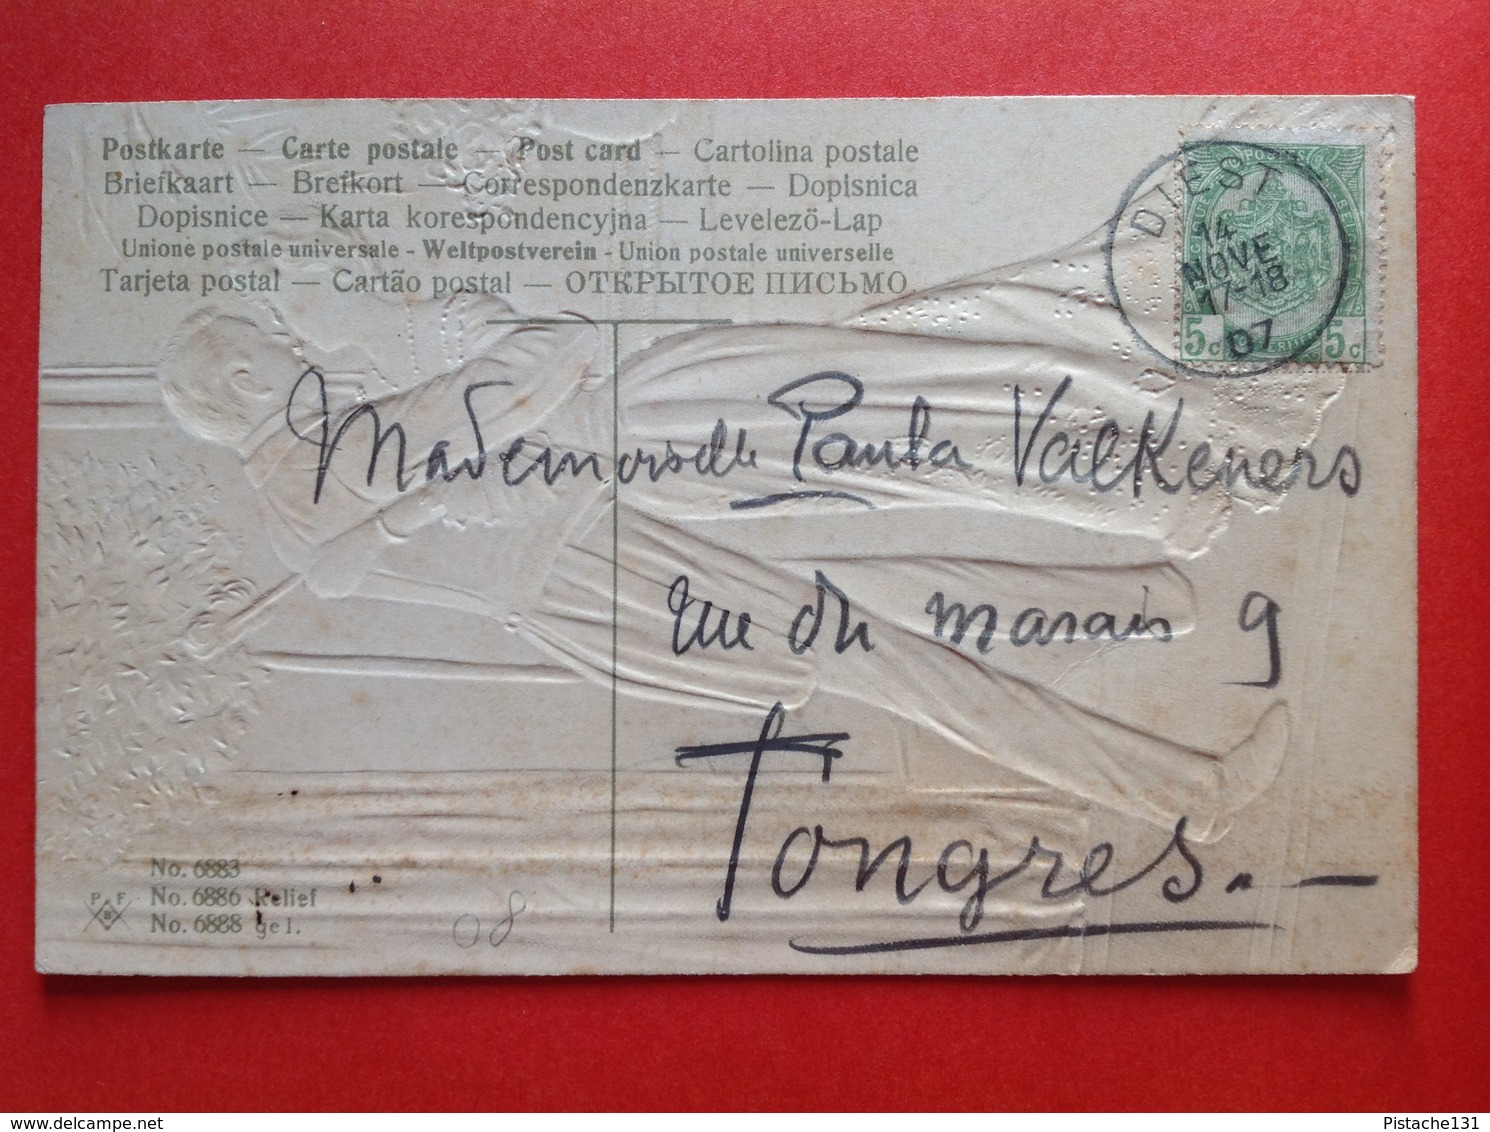 Postkarte — Carte postale — Post card — Cartolina postale
Briefkaart — Brefkort — Correspondenzkarte — Dopisnica
Dopisnice — Karta korespondencyjna — Levelező-Lap
Unione postale universale - Weltpostverein - Union postale universelle
Tarjeta postal — Cartão postal — ОТКРЫТОЕ ПИСЬМО.
DIEST
14
NOVE
17-18
07
5c 5c
Mademoiselle Paula Valkeners
rue du marais 9
Tongres. —
No. 6883
No. 6886 Relief
No. 6888 gel.
P F
B
08
Pistache131